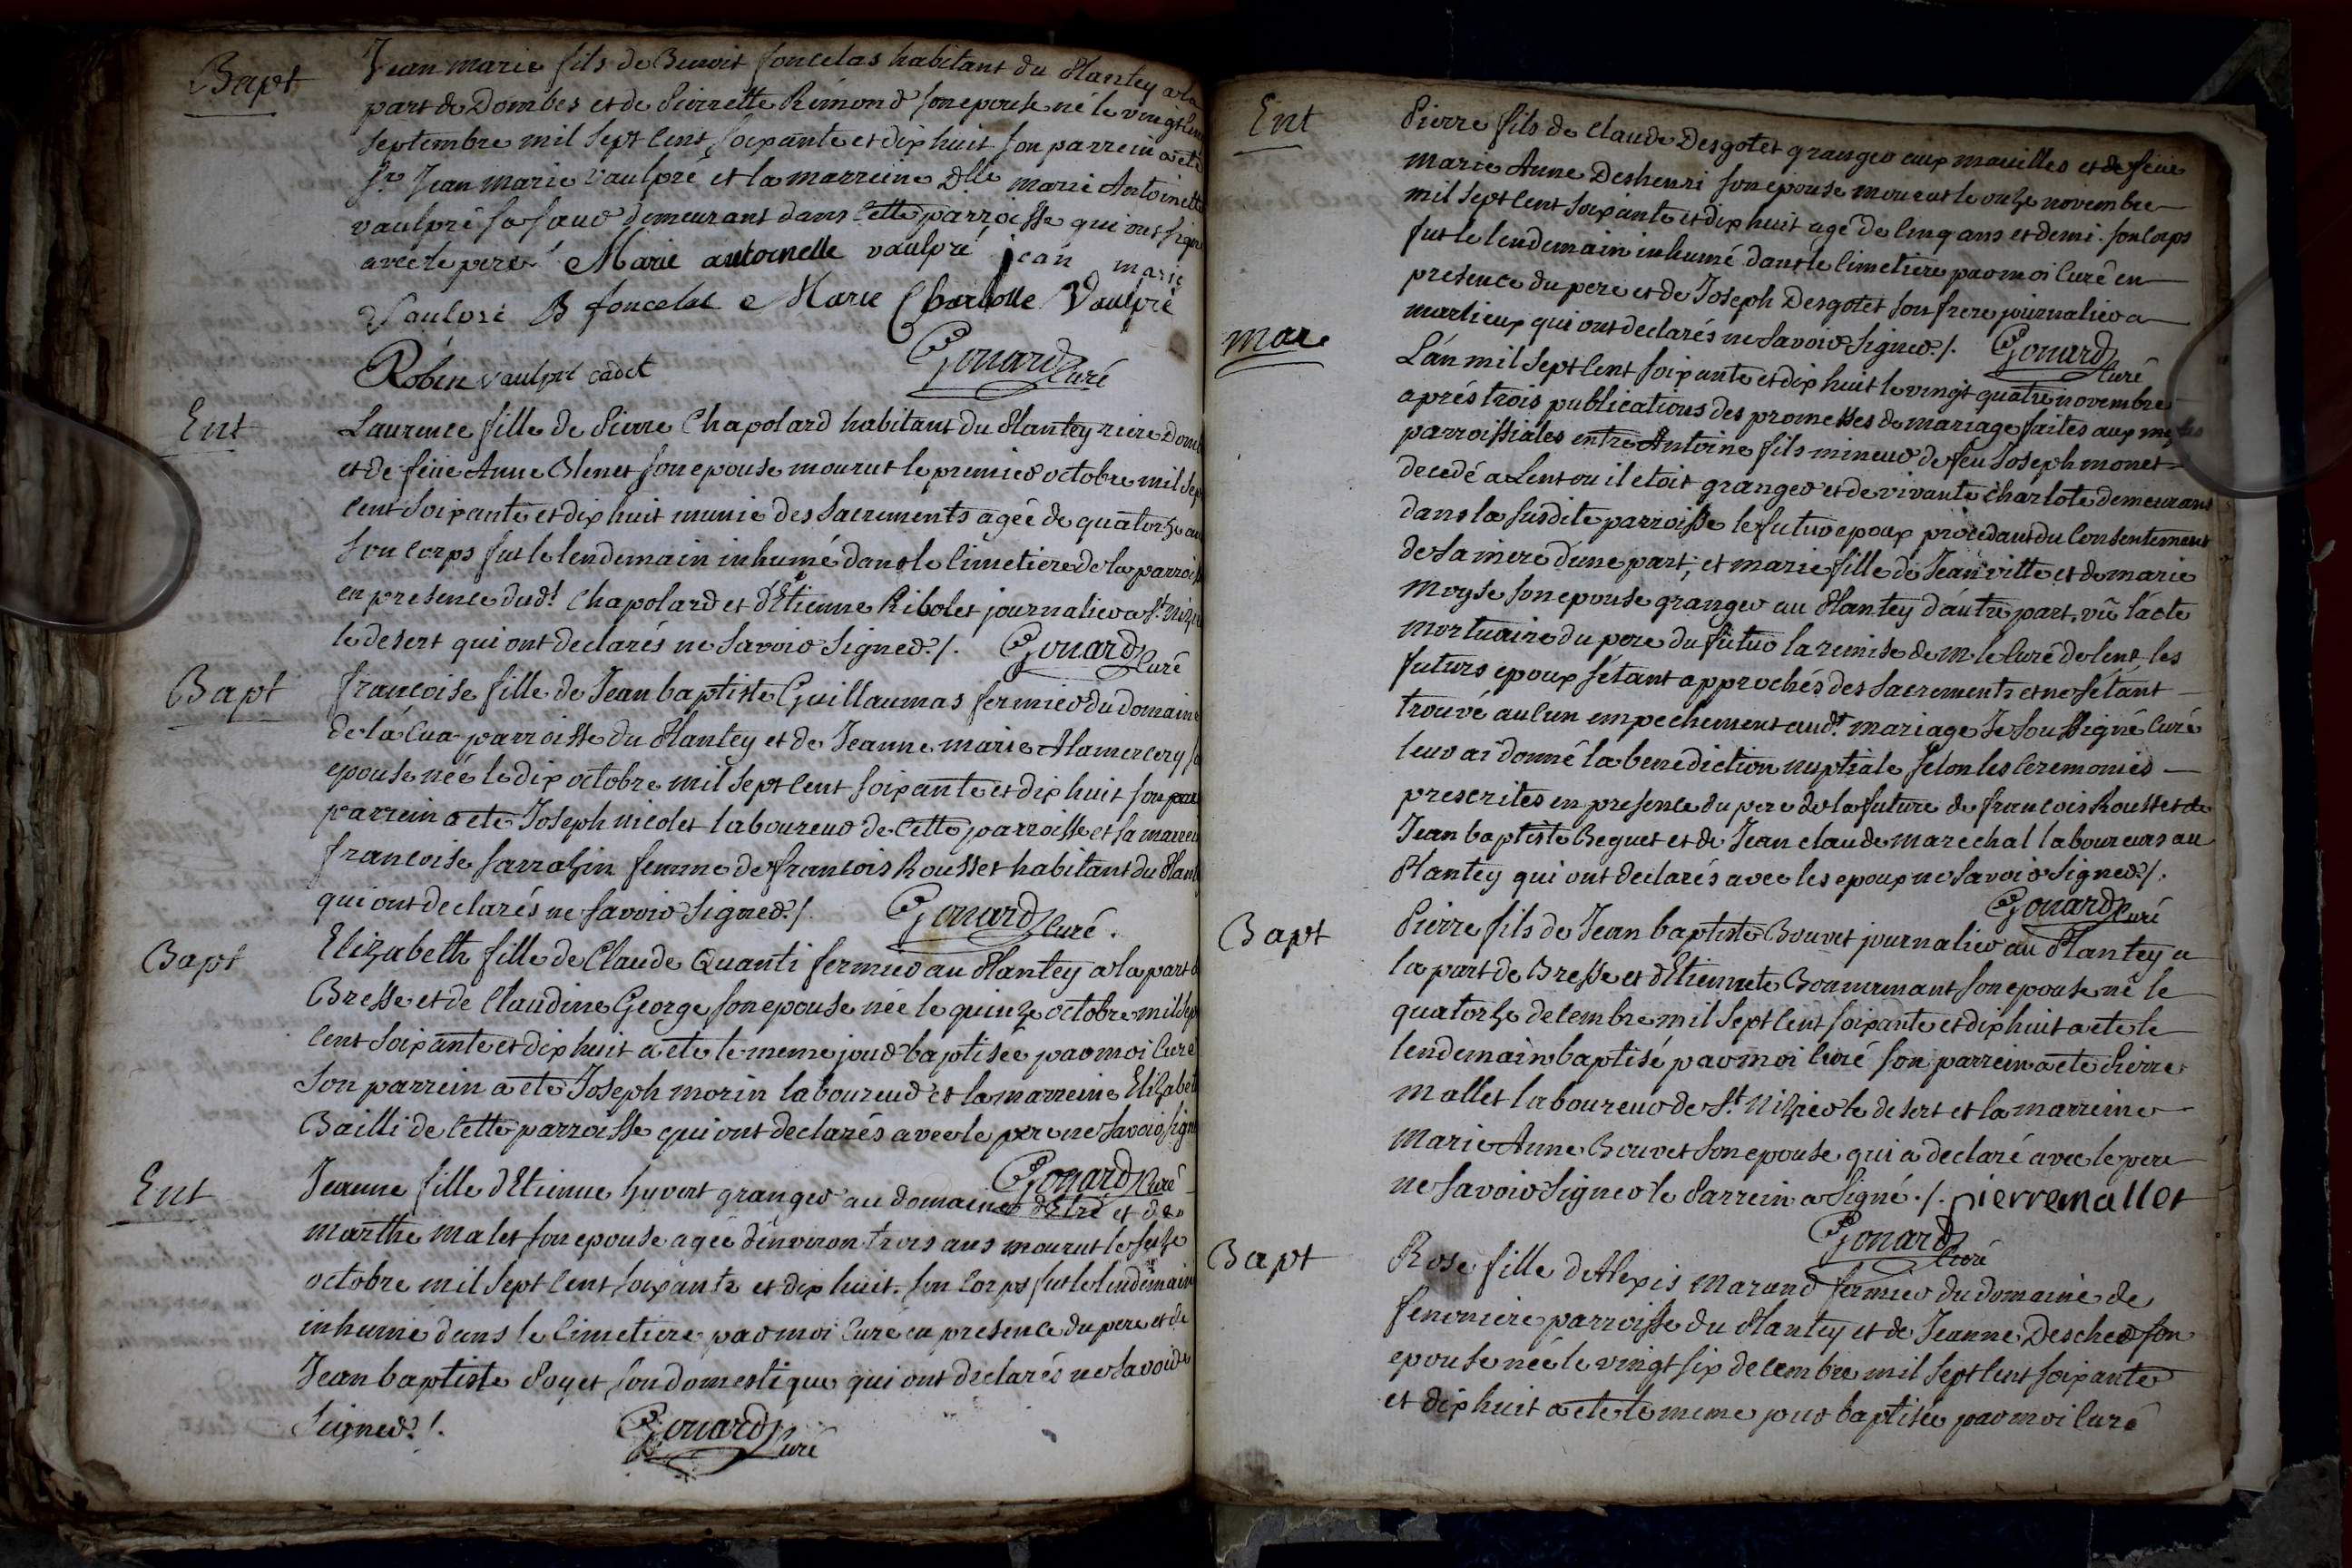 Bapt
Jean marie fils de Benoit foncelas habitant du Plantey a la
part de Dombes et de Pierrette Rémond son epouse né le vingt
septembre mil sept cent soixante et dix huit son parrein a eté
Sr. Jean marie vaulpré et la marreine Dlle marie Antoinette
vaulpré sa saur demeurant dans cette parroisse qui ont signé
avec le pere Marie antoinette vaulpré jean marie
Vaulpré B foncelas Marie Charlotte Vaulpré
Robin vaulpré cadet Gonard Curé
Ent
Laurence fille de Pierre Chapolard habitant du Plantey riere Dombe
et de feüe Anne Blenet son epouse mourut le premier octobre mil sept
cent soixante et dix huit munie des sacrements agée de quatorze ans
son corps fut le lendemain inhumé dans le cimetiere de la parroisse
en presence dudt. Chapolard et d'Etienne Ribolet journalier a St. Nizier
le desert qui ont declarés ne savoir signer ./. Gonard Curé
Bapt
françoise fille de Jean baptiste Guillaumas fermier du domaine
de la Cua parroisse du Plantey et de Jeanne marie Alamercery sa
epouse née le dix octobre mil sept cent soixante et dix huit son
parrein a eté Joseph nicolet laboureur de cette parroisse et sa marreine
francoise sarrasin femme de francois Rousset habitant du Plantey
qui ont declarés ne savoir signer ./. Gonard Curé.
Bapt
Elizabeth fille de Claude Quanti fermier au Plantey a la part de
Bresse et de Claudine George son epouse née le quinze octobre mil sept
cent soixante et dix huit a eté le meme jour baptisée par moi Curé
son parrein a eté Joseph morin laboureur et la marreine Elizabeth
Bailli de cette parroisse qui ont declarés avec le pere ne savoir signer
Gonard Curé
Ent
Jeanne fille d'Etienne huvert granger au domaine d'Etre et de
marthe malet son epouse agée d'environ trois ans mourut le seize
octobre mil sept cent soixante et dix huit. son corps fut le lendemain
inhumé dans le cimetiere par moi Curé en presence du pere et de
Jean baptiste Poyet son domestique qui ont declarés ne savoir
signer ./. Gonard Curé
Ent
Pierre fils de Claude Desgotet granger aux mauilles et de feüe
marie Anne Deshenri son epouse mourut le onze novembre
mil sept cent soixante et dix huit agé de cinq ans et demi. son corps
fut le lendemain inhumé dans le cimetiere par moi Curé en
presence du pere et de Joseph Desgotet son frere journalier a
marlieux qui ont declarés ne savoir signer ./. Gonard Curé
Mare
L'an mil sept cent soixante et dix huit le vingt quatre novembre
aprés trois publications des promesses de mariage faites aux messes
parroissiales entre Antoine fils mineur de feu Joseph monet
decedé a Lent ou il etoit granger et de vivante Charlote demeurans
dans la susdite parroisse le futur epoux procedant du consentement
de sa mere d'une part; et marie fille de Jean vitte et de marie
moyse son epouse granger au Plantey d'autre part, vû l'acte
mortuaire du pere du futur la remise de m le Curé de lent, les
futurs epoux s'étant approchés des sacrements et ne s'étant
trouvé aucun empechement audt. mariage Je soussigné Curé
leur ai donné la benediction nuptiale selon les ceremonies
prescrites en presence du pere de la future de francois Rousset de
Jean baptiste Beguet et de Jean claude marechal laboureurs au
Plantey qui ont declarés avec les epoux ne savoir signer ./.
Gonard Curé
Bapt
Pierre fils de Jean baptiste Bouvet journalier au Plantey a
la part de Bresse et d'Etiennete Bonnemant son epouse né le
quatorze decembre mil sept cent soixante et dix huit a eté le
lendemain baptisé par moi Curé son parrein a eté Pierre
mallet laboureur de St. Nizier le desert et la marreine
marie Anne Bouvet son epouse qui a declaré avec le pere
ne savoir signer le Parrein a signé ./. pierre mallet
Gonard Curé
Bapt
Rose fille d'Alexis marand fermier du domaine de
fenoniere parroisse du Plantey et de Jeanne Descher son
epouse née le vingt six decembre mil sept cent soixante
et dix huit a eté le meme jour baptisée par moi Curé